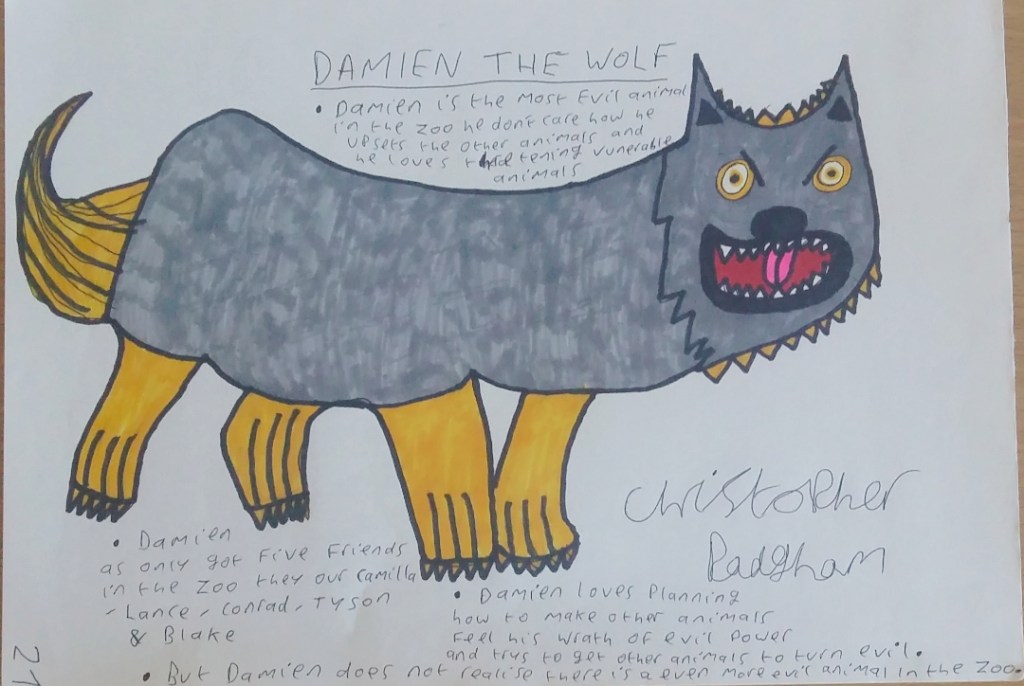 DAMIEN THE WOLF
• Damien is the most Evil animal
in the zoo he don't care how he
upsets the other animals and
he loves tening vunerable
animals
Christopher
Padgham
• Damien
as only got Five Friends
in the zoo they our Camilla
- Lance, Conrad, Tyson
& Blake
• Damien loves planning
how to make other animals
Feel his wrath of evil power
and trys to get other animals to turn evil.
• But Damien does not realise there is a even more evil animal in the zoo.
21